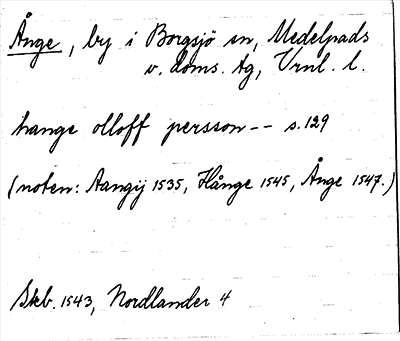 Ånge, by i Borgsjö sn, Medelpads
v. doms. tg, Vrnl. l.
hange olloff persson -- s. 129
(noten: Aangij 1535, Hånge 1545, Ånge 1547.)
Skb. 1543, Nordlander 4